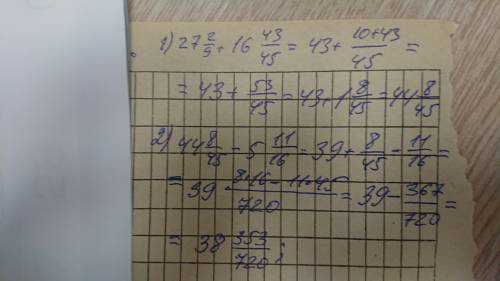 1) 27 2/9 + 16 43/45 = 43 + (10+43)/45 =
= 43 + 53/45 = 43 + 1 8/45 = 44 8/45
2) 44 8/45 - 5 11/16 = 39 + 8/45 - 11/16 =
= 39 (8·16 - 11·45)/720 = 39 - 367/720 =
= 38 353/720;